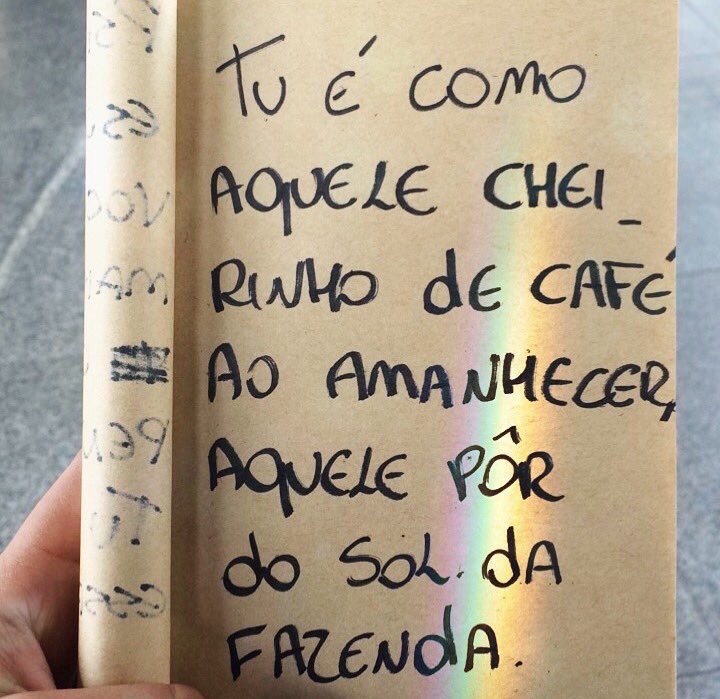 TU É COMO
AQUELE CHEI_
RINHO dE CAFÉ
AO AMANHECER,
AQUELE PÔR
do SOL. dA
FAZENdA.